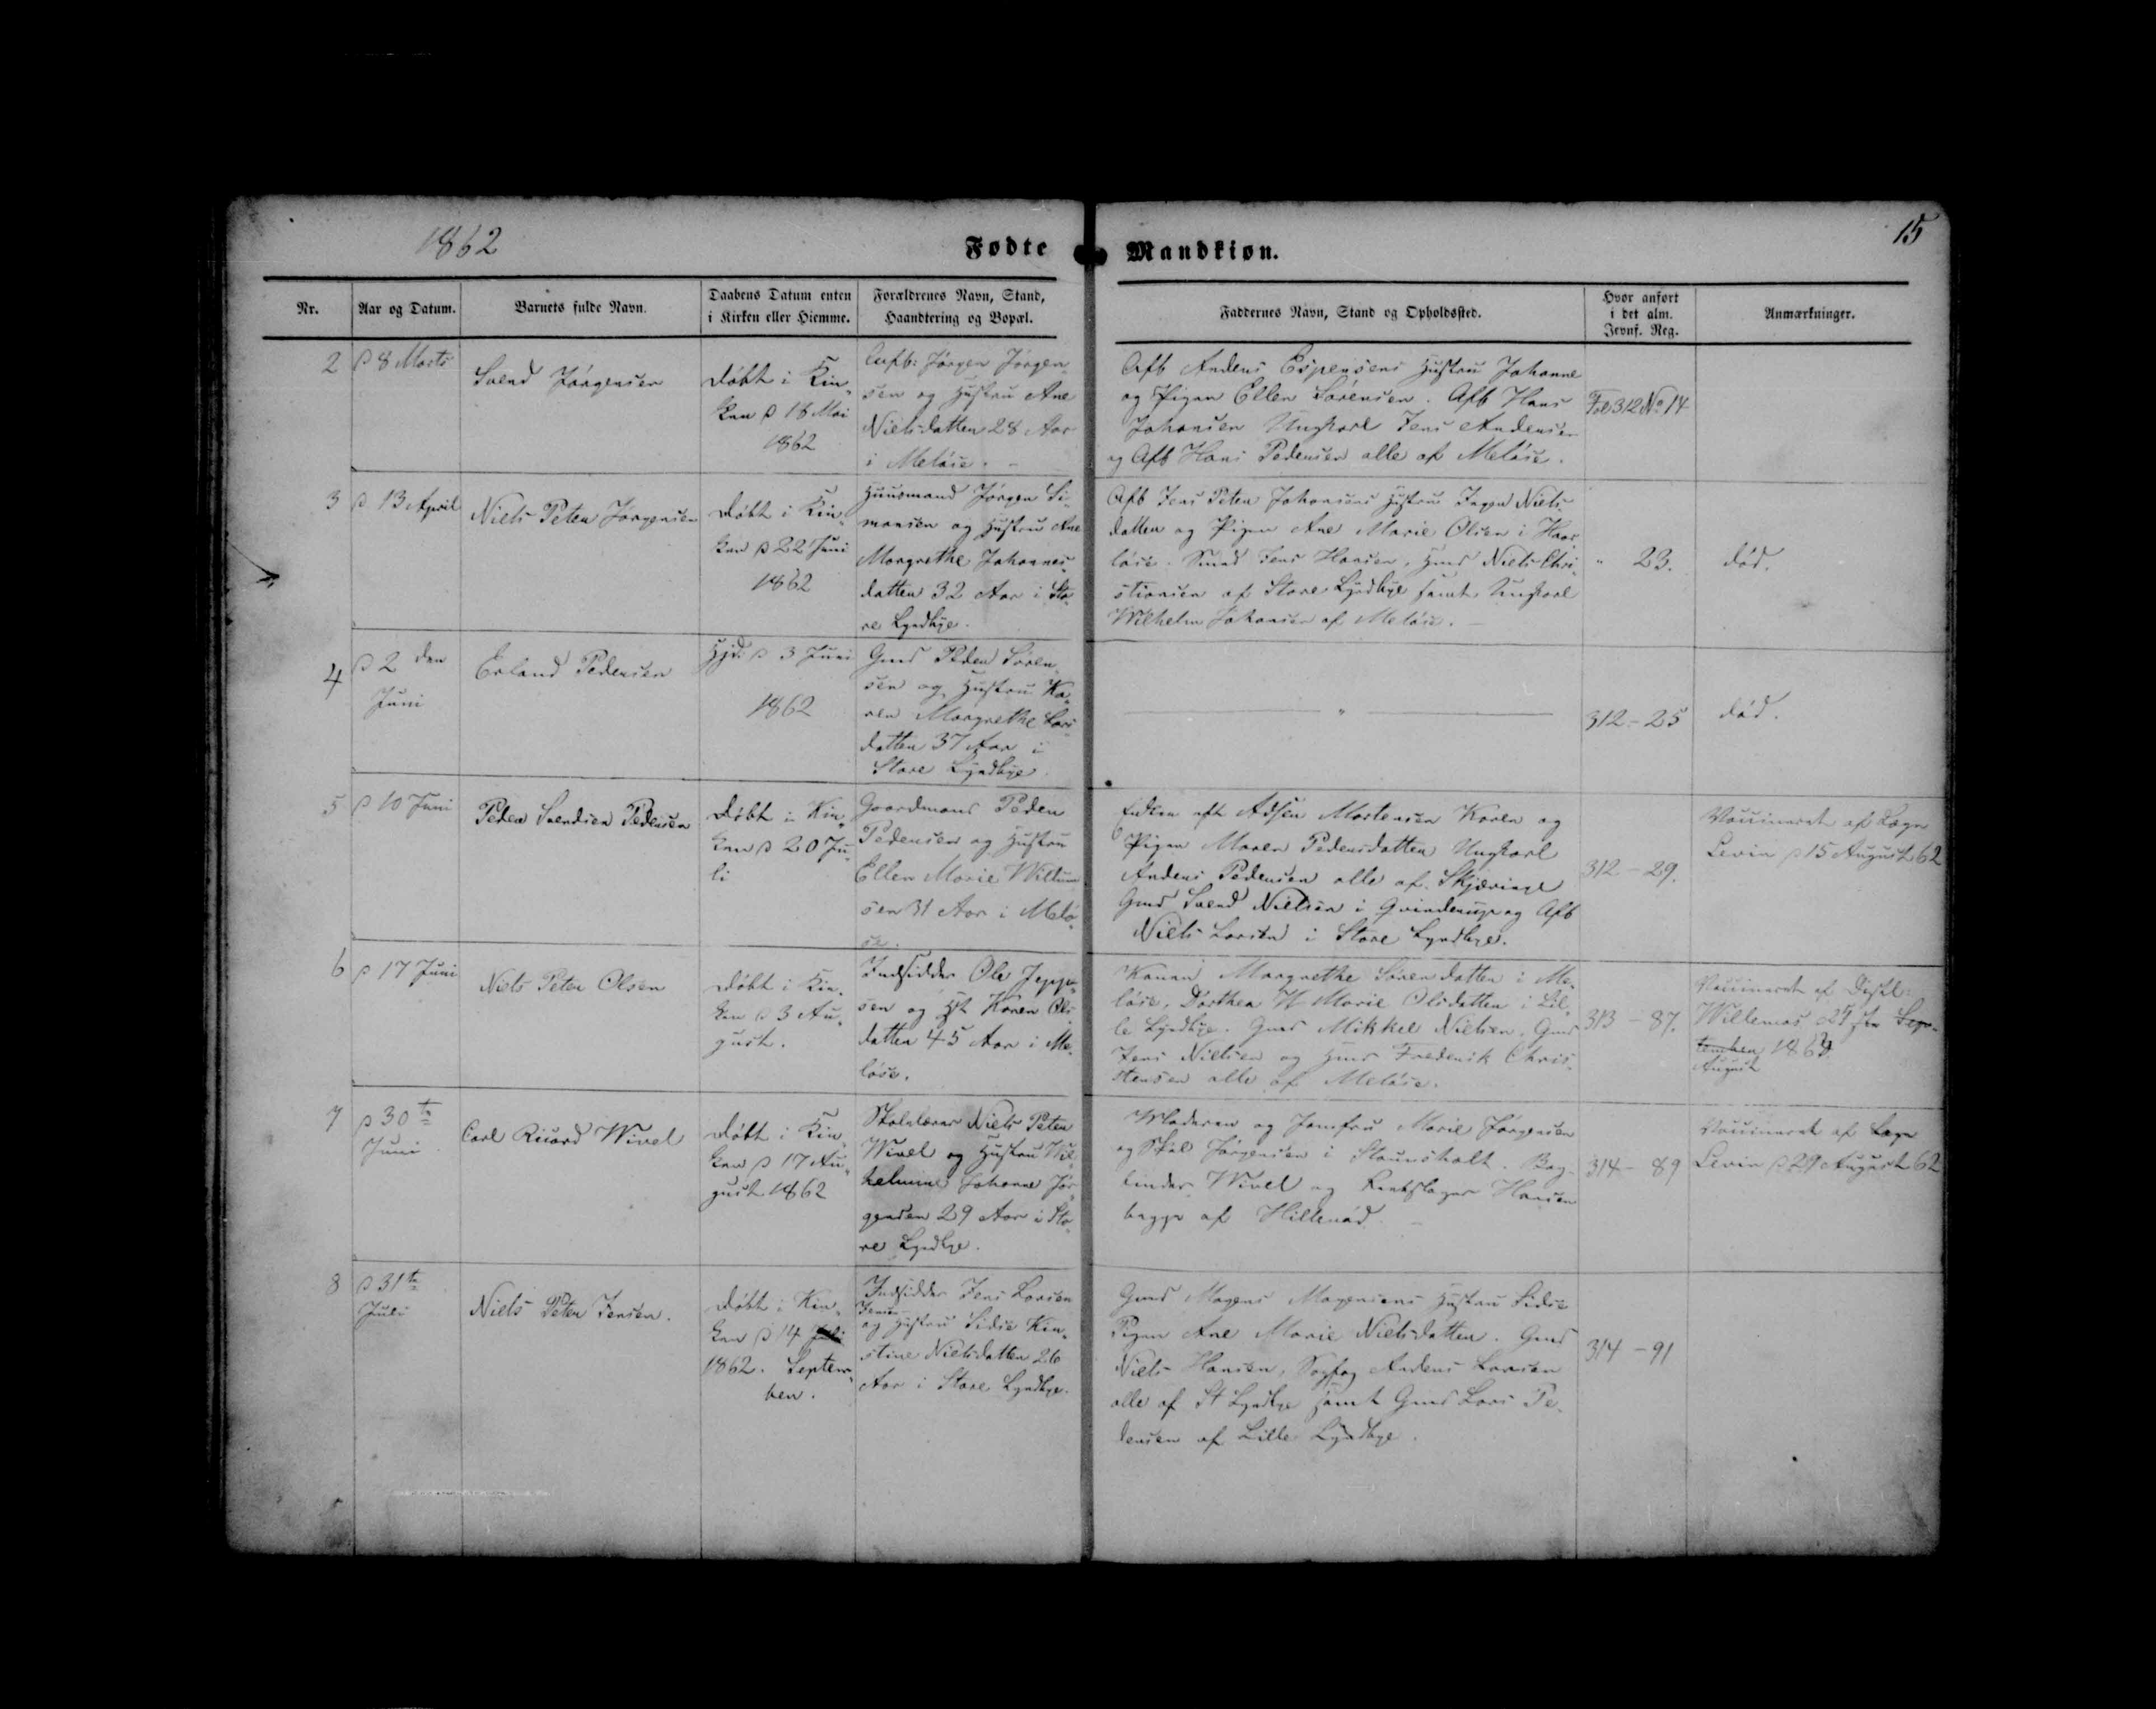 1862
Fødte
Mandkiøn.
15
Nr.
Aar og Datum.
Barnets fulde Navn.
Daabens Datum enten
i Kirken eller Hiemme.
Forældrenes Navn, Stand,
Haandtering og Bopæl.
Faddernes Navn, Stand og Opholdssted.
Hvor anført
i det alm.
Jevnf. Reg.
Anmærkninger.
2
8 Marts
Svend Jørgensen
Døbt i Kir„
ken 18 Mai
1862
Jørgen Jørgen„
sen og Hustru Ane
Nielsdatter 28 Aar
i Meløse.
Afb Anders Espensens Hustru Johanne
og Pigen Ellen Sørensen. Afb Hans
Johansen Ungkarl Jens Andersen
og Afb Hans Pedersen alle af Meløse.
Fol 312 No 14
3
13 April
Niels Peter Jørgensen
Døbt i Kir„
ken 22 Juni
1862
Huusmand Jørgen Si„
monsen og Hustru Ane
Margrethe Johannes„
datter 32 Aar i Sto„
re Lyndbye.
Afb Jens Peter Johansens Hustru Inger Niels„
datter og Pigen Ane Marie Olsen i Haar„
løse. Smed Jens Hansen, Hmd Niels Chri„
stiansen af Store Lyndbye samt Ungkarl
Wilhelm Johansen af Meløse.
" 23.
død.
4
2 den
Juni
Erland Pedersen
Hjd: 3 Juni
1862
Gmd Peder Søren„
sen og Hustru Ka„
ren Margrethe Lars„
datter 37 Aar i
Store Lyndbye
"
312 - 25
død.
5
10 Juni
Peder Svendsen Pedersen
Døbt i Kir„
ken 20 Ju„
li
Gaardmand Peder
Pedersen og Hustru
Ellen Marie Willum
sen 31 Aar i Melø„
se.
Mortensen Karen og
Pigen Maren Pedersdatter Ungkarl
Anders Pedersen alle af Skjævinge
Gmd Svend Nielsen i Qvinderup og Afb
Niels Larsen i Store Lyndbye.
312 - 29.
Vaccineret af Læge
Levin 15 August 62
6
17 Juni
Niels Peter Olsen
Døbt i Kir„
ken 3 Au„
gust.
Indsidder Ole Jeppe„
sen og Hst Karen Ols„
datter 45 Aar i Me„
løse.
Konen Margrethe Sørensdatter i Me„
løse, Dorthea Marie Olsdatter i Lil„
le Lyndbye. Gmd Mikkel Nielsen, Gmd
Jens Nielsen og Hmd Frederik Chris„
tensen alle af Meløse.
313 - 87.
Vaccineret af Distl:
Willemos 29 Sep„
tember 186
August
7
30te
Juni
Carl Ricard Wivel
Døbt i Kir„
ken 17 Au„
gust 1862
Skolelærer Niels Peter
Wivel og Hustru Wil„
helmine Johanne Jør„
gensen 29 Aar i Sto„
re Lyndbye.
Moderen og Jomfru Marie Jørgensen
og Jørgensen i Staunsholt. Bog„
binder Wivel og Rebslager Hansen
begge af Hillerød.
314 - 89
Vaccineret af Læge
Levin 29 August 62
8
31te
Juli
Niels Peter Jensen.
Døbt i Kir„
ken 14 Juli
1862. Septem„
ber.
Indsidder Jens Larsen
Jensen
og Hustru Sidse Kir„
stine Nielsdatter 26
Aar i Store Lyndbye.
Gmd Mogens Mogensens Hustru Sidse
Pigen Ane Marie Nielsdatter. Gmd
Niels Hansen, Sogfog Anders Larsen
alle af St Lyndbye samt Gmd Lars Pe„
dersen af Lille Lyndbye.
314 - 91